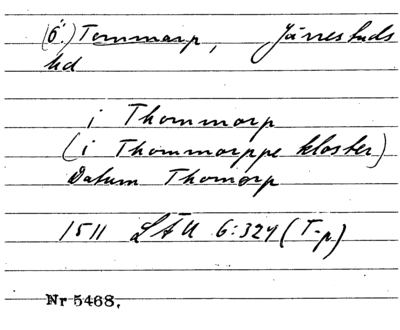 (Ö.) Tommarp, Järrestads
hd
i Thommorp
(i Thommorppe kloster)
Datum Thomorp
1511 LÅU 6:324 (T-p)
Nr 5468.